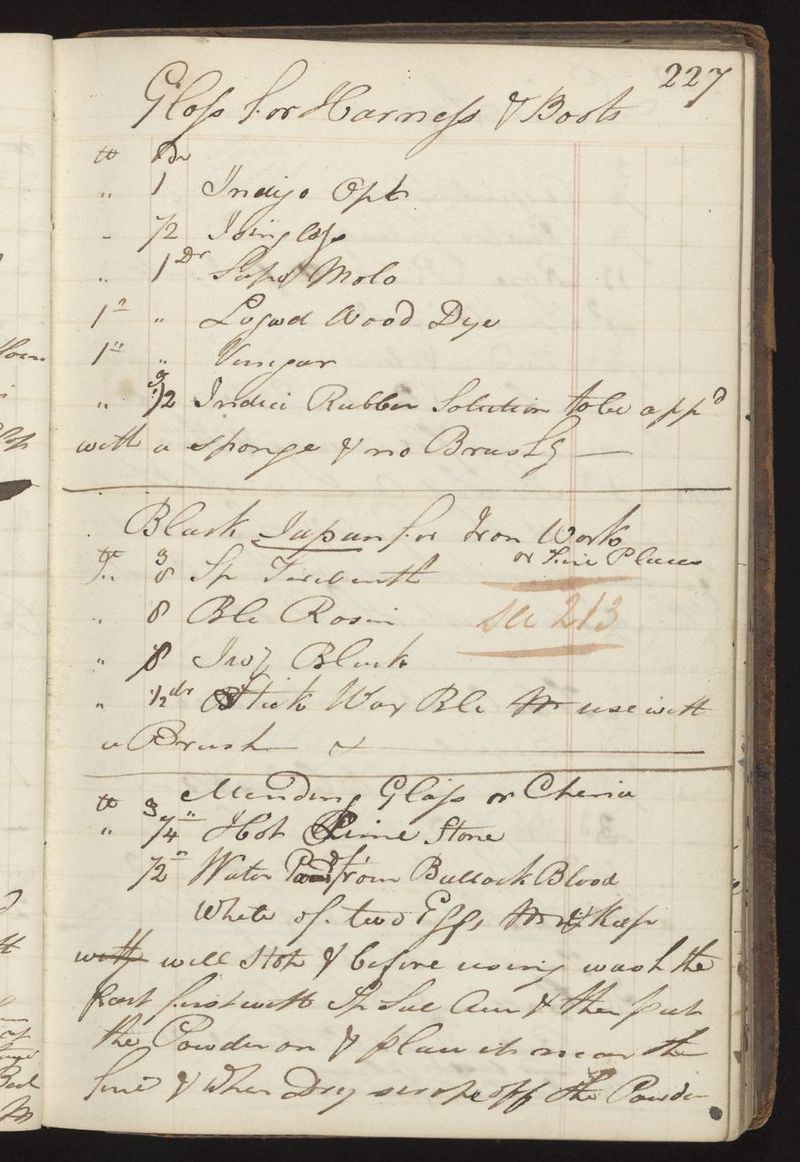 227
Gloss for Harness & Boots
tt Dr
" 1 Indigo Opt
- 1/2 Isinglass
" 1 Dr Sapo Molo
1 " Logwd Wood Dye
1 " Vinegar
" 1/2 India Rubber Solution to be app'd
with a sponge & no Brush
Black Japan for Iron Work
or Fire Places
tt 3
" 8 Sp Terebinth
" 8 Blk Rosin
see 213
" 8 Ivoy Black
" 1/2 dr Stick Wax Blk M use with
a Brush
Mending Glass or China
tt 3
" 1/4 " Hot Lime Stone
1/2 " Water from Bullock Blood
White of two Eggs M & Keep
with well Stop & before using wash the
part first with Sp Sal Am & then put
the Powder on & place it near the
fire & when Dry scrape off the Powder